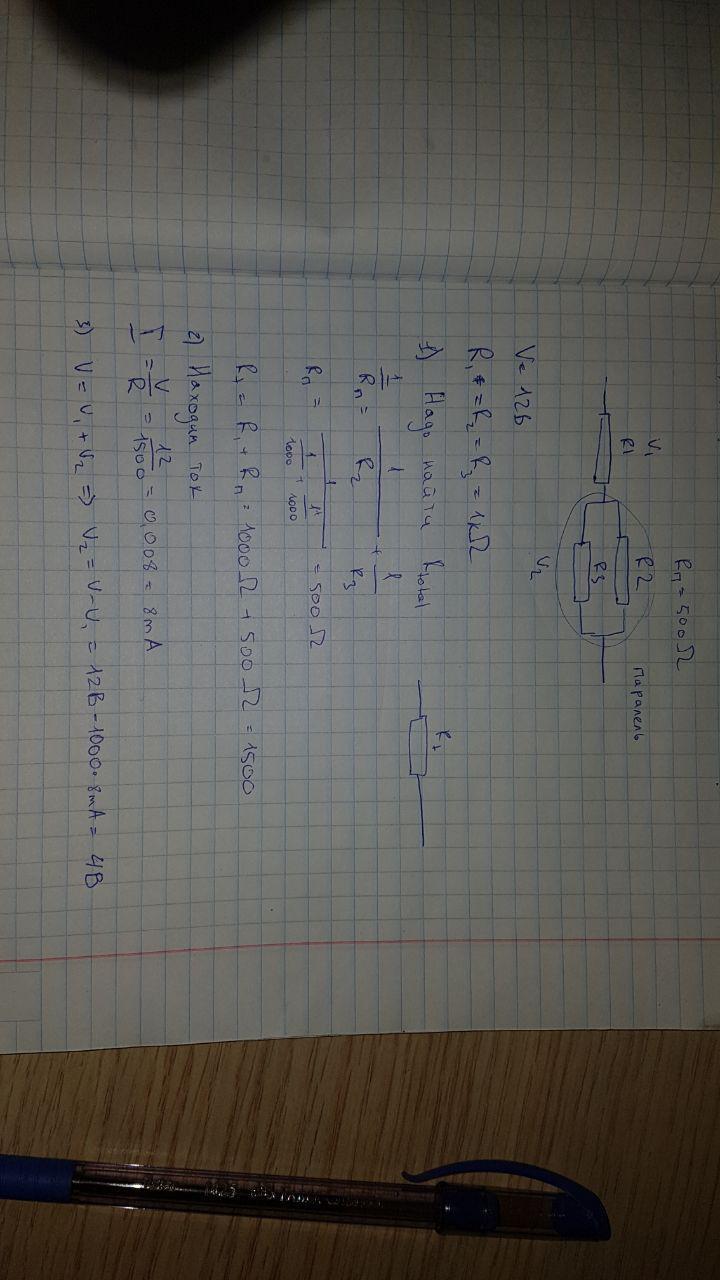 Rп = 500Ω
Паралель
V₁
R1
R2
R3
V₂
V = 12В
R₁ = R₂ = R₃ = 1kΩ
1) Надо найти Rtotal
Rt
1/Rп = 1/R₂ + 1/R₃
Rп = 1/(1/1000 + 1/1000) = 500Ω
Rt = R₁ + Rп = 1000Ω + 500Ω = 1500
2) Находим ток
I = V/R = 12/1500 = 0,008 = 8mA
3) V = V₁ + V₂ => V₂ = V - V₁ = 12В - 1000 · 8mA = 4В